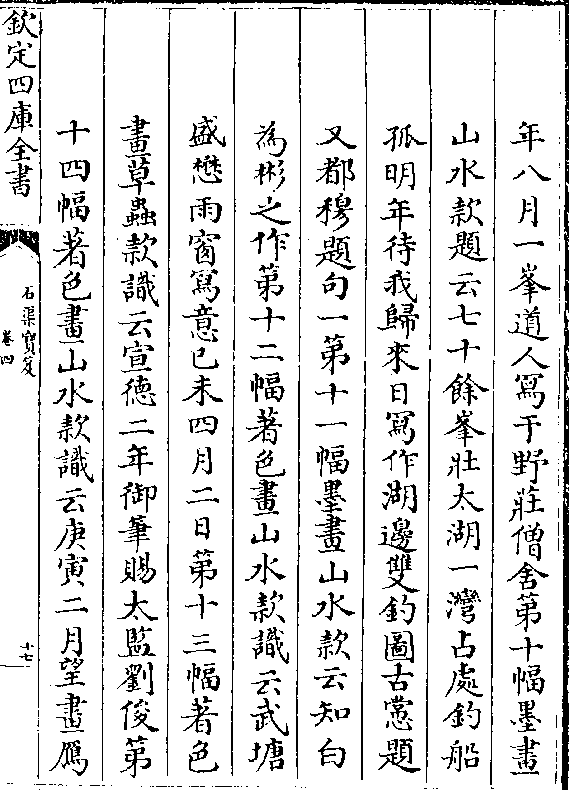 年八月一峯道人寫于野莊僧舍第十幅墨畫
山水款題云七十餘峯壯太湖一灣占處釣船
孤明年待我歸來日寫作湖邊雙釣圖古棠題
又都穆題句一第十一幅墨畫山水款云知白
為彬之作第十二幅著色畫山水款識云武塘
盛懋雨窗寫意己未四月二日第十三幅著色
畫草蟲款識云宣德二年御筆賜太監劉俊第
十四幅著色畫山水款識云庚寅二月望畫鴈
欽定四庫全書
石渠寶笈
卷四
十七